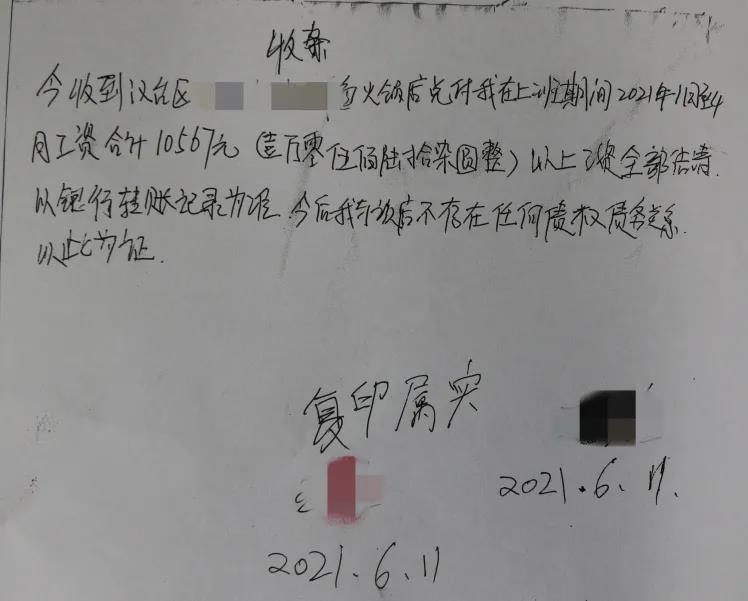 收条
今收到汉台区 火锅店兑付我在上班期间2021年1月至4
月工资合计10567元(壹万零伍佰陆拾柒圆整)以上工资全部结清.
以银行转账记录为准 今后我与该店不存在任何债权债务关系.
以此为证.
复印属实
2021.6.11.
2021.6.11